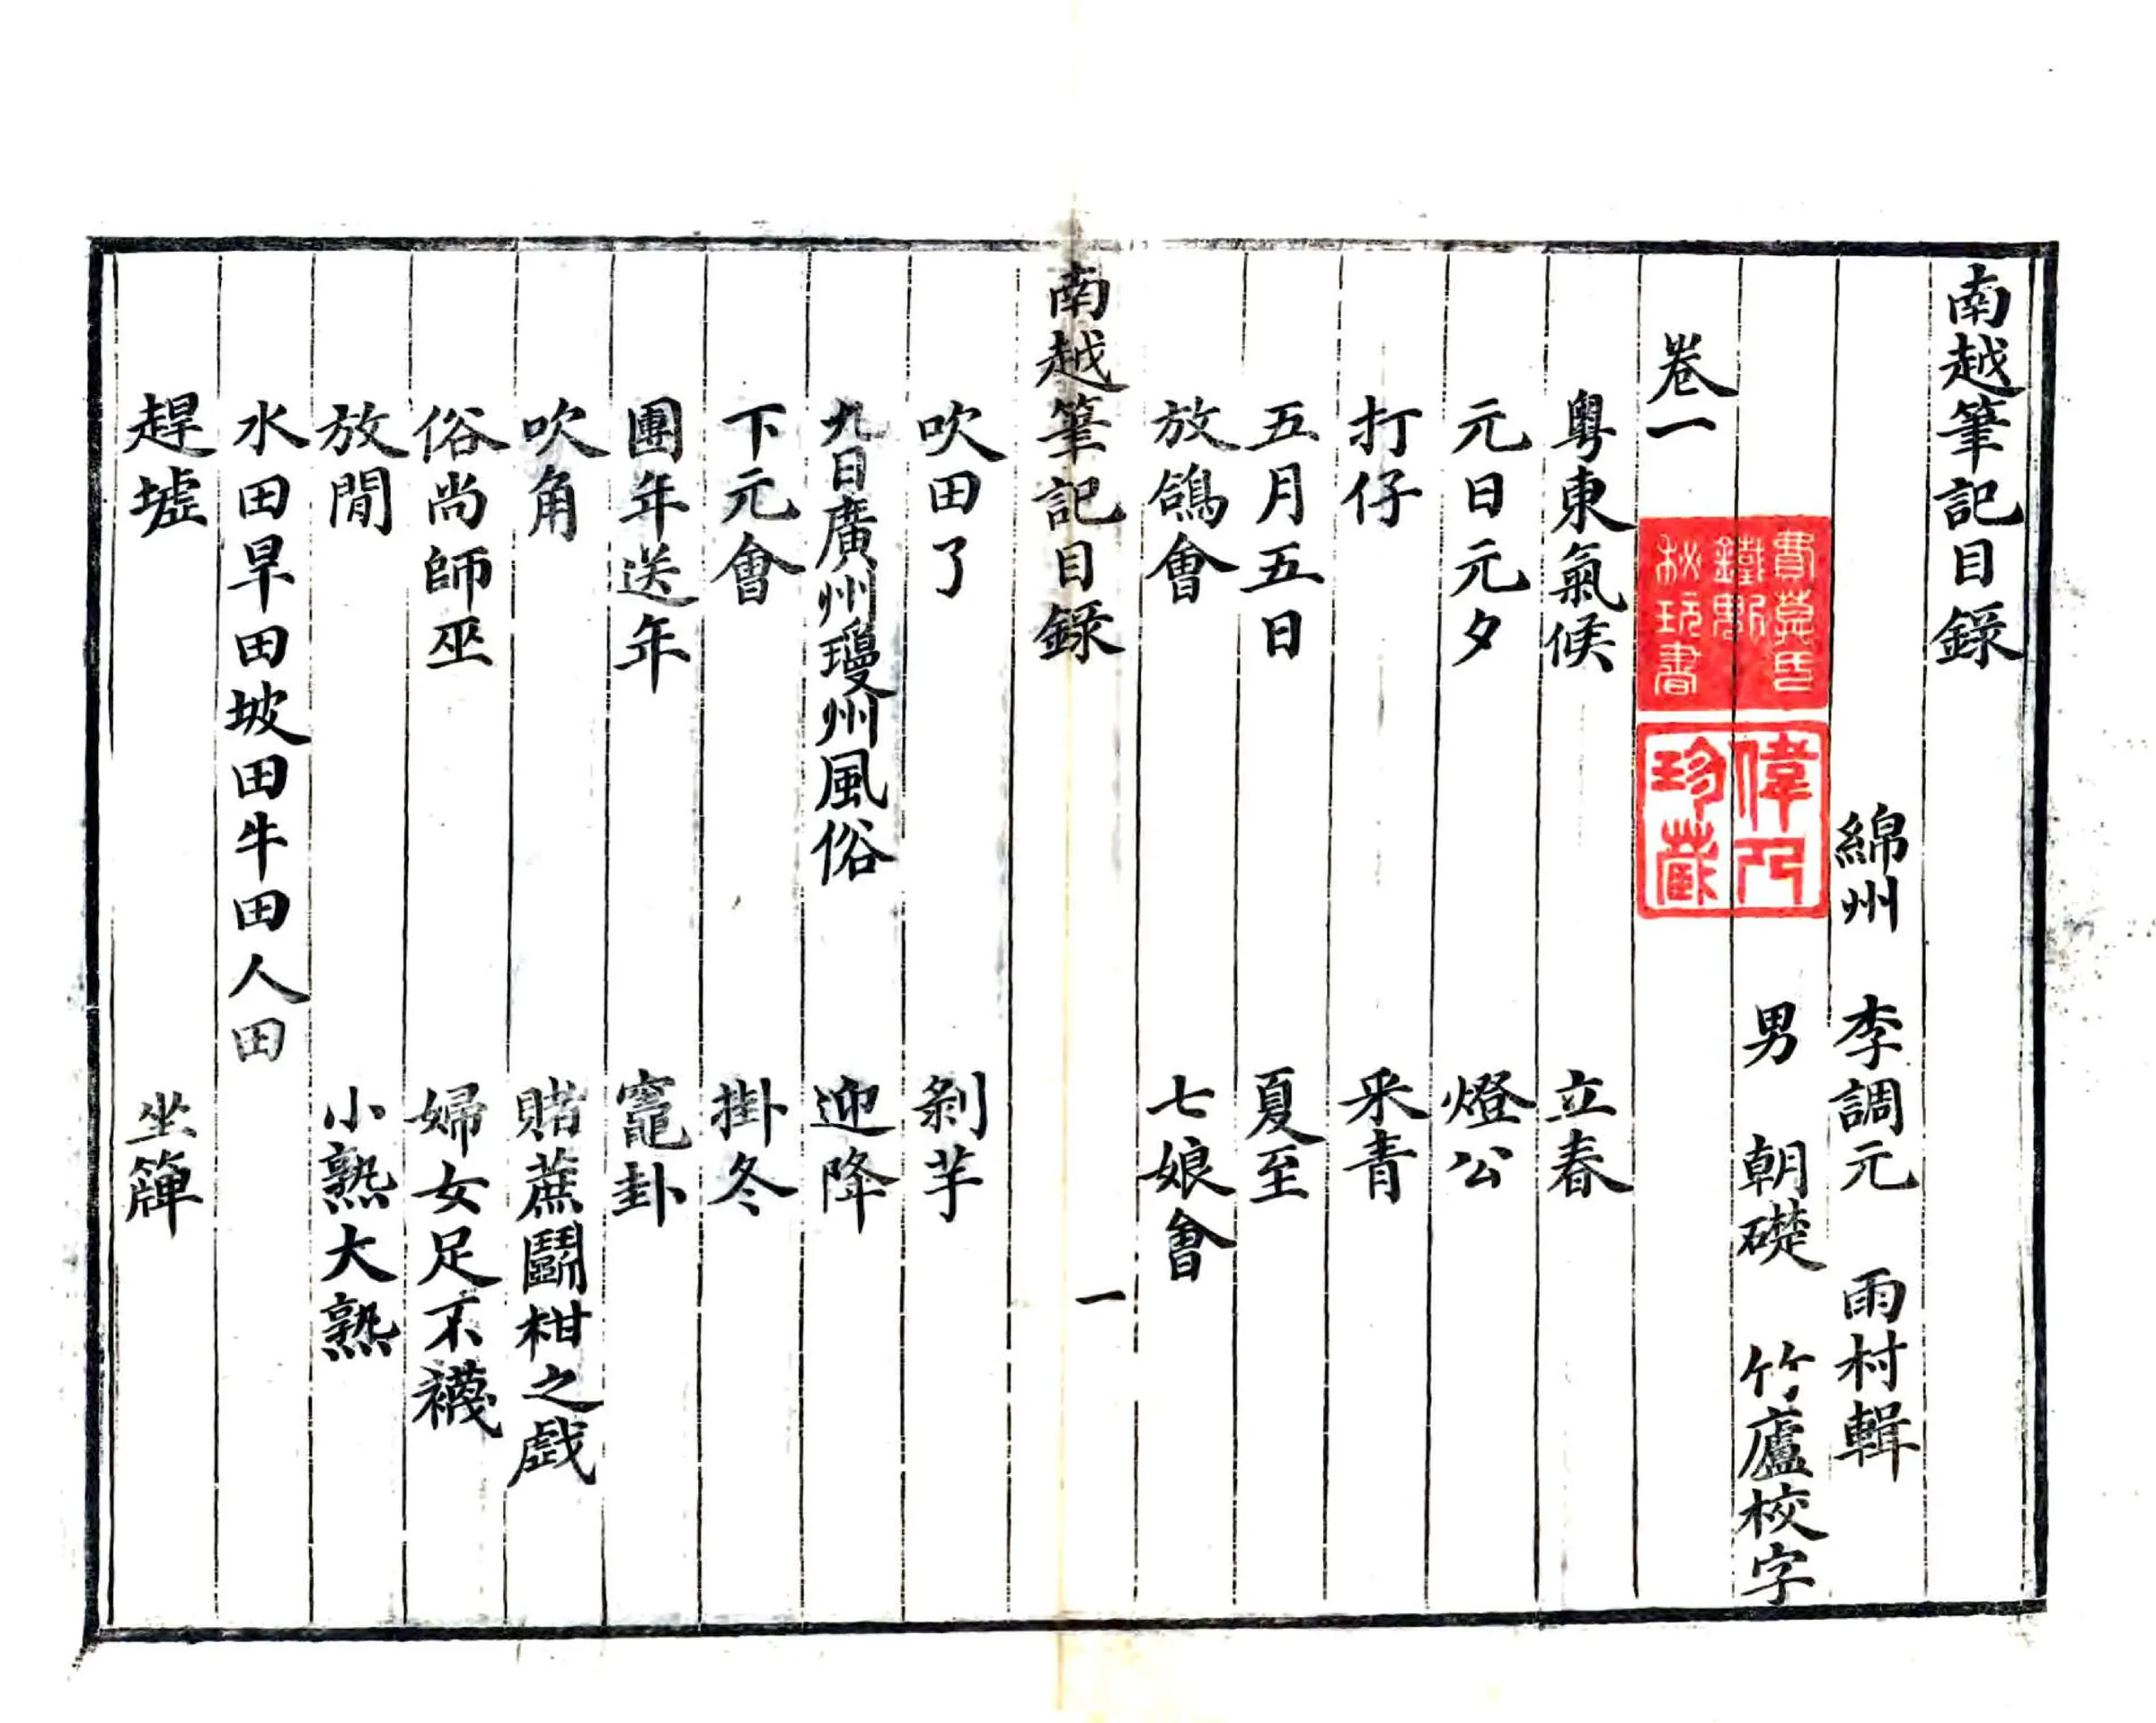 南越筆記目錄
綿州 李調元 雨村輯
男 朝礎 竹廬校字
卷一
粵東氣候 立春
元日元夕 燈公
打仔 采青
五月五日 夏至
放鴿會 七娘會
南越筆記目錄 一
吹田了 剝芋
九日廣州瓊州風俗 迎降
下元會 掛冬
團年送年 竈卦
吹角 賭蔗鬭柑之戲
俗尚師巫 婦女足不襪
放閒 小熟大熟
水田旱田坡田牛田人田
趕墟 坐簰
費莫氏
秋玩書
珍藏